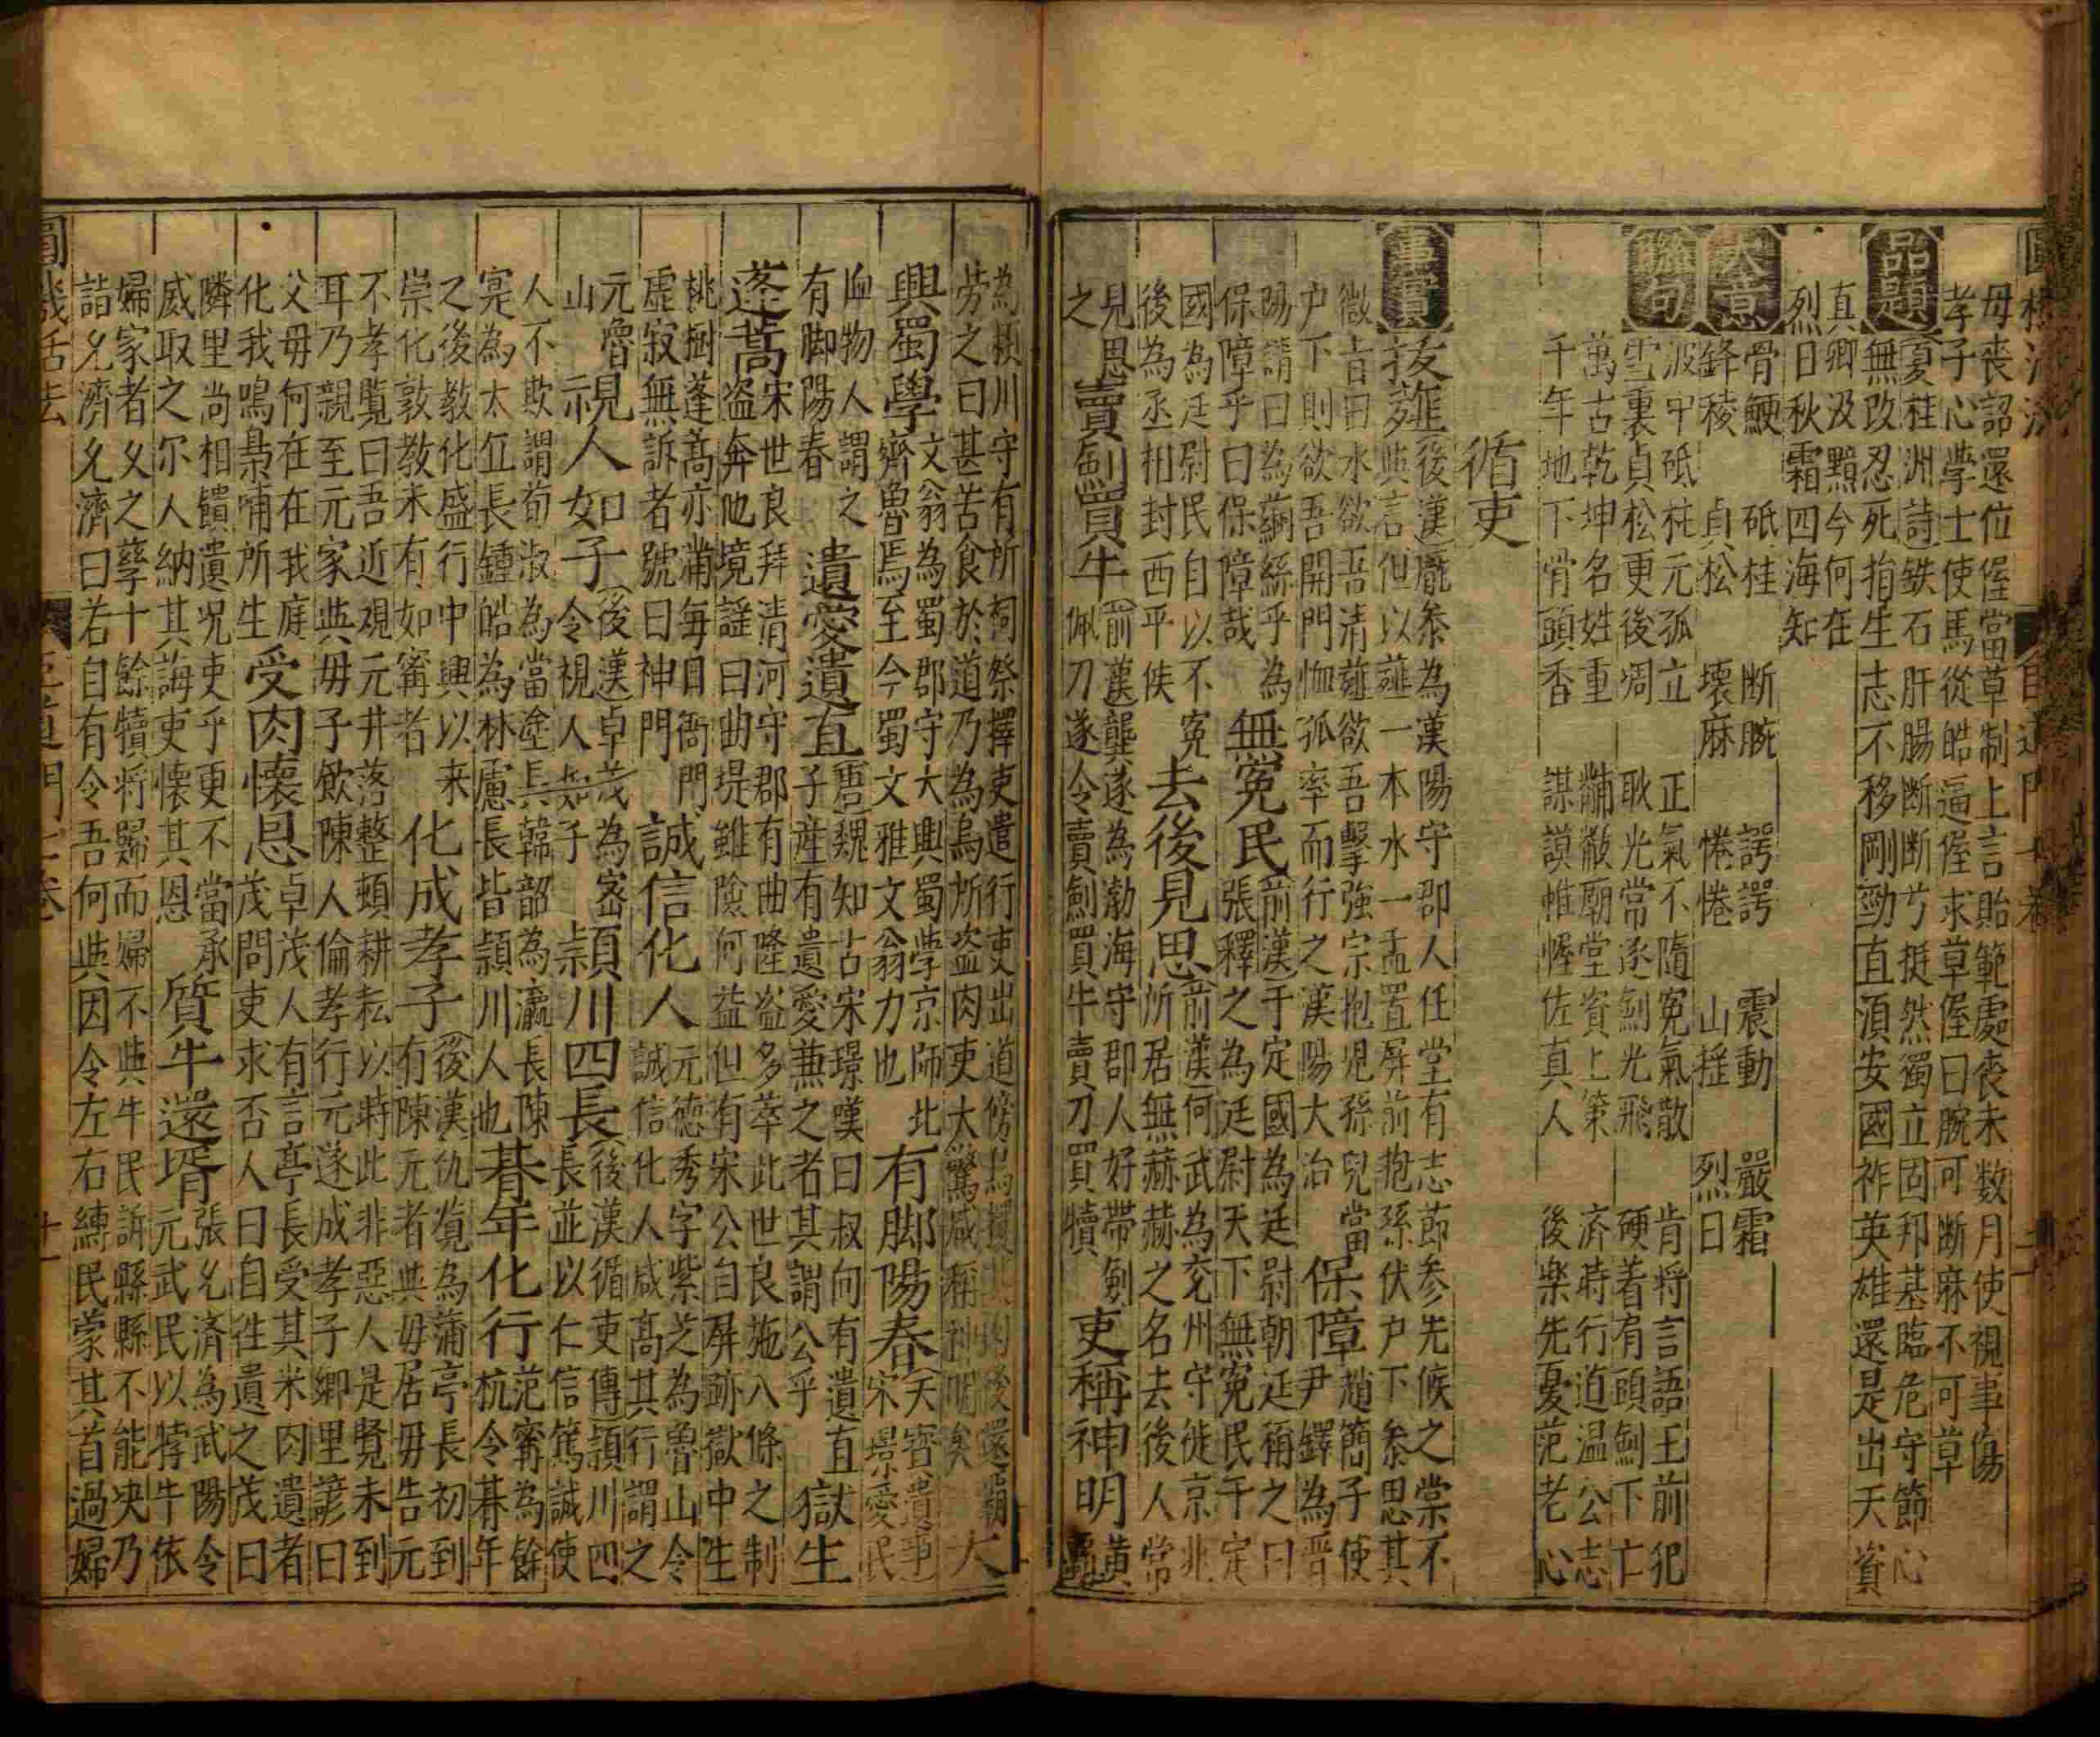 毋丧詔還位偓當草制上言貽範處喪未数月使視事傷
孝子心學士使馬從皓逼偓求草偓曰腕可断麻不可草
品題
夏桂洲詩鉄石肝腸断断兮挺然獨立固邦基臨危守節心
無改忍死指生志不移剛勁直須安國祚英雄還是出天資
真卿汲黯今何在
烈日秋霜四海知
大意
骨鯁 砥柱 断腕 諤諤 震動 嚴霜
鋒稜 貞松 壊麻 惓惓 山揺 烈日
聯句
波中砥柱元孤立 正氣不隨寃氣散 肯将言語王前犯
雪裏貞松更後凋 耿光常逐劍光飛 硬着有頭劍下亡
萬古乾坤名姓重 黼黻廟堂資上策 済時行道温公志
千年地下骨頭香 謀謨帷幄佐真人 後樂先憂范老心
循吏
事實
拔薤 後漢龐叅為漢陽守郡人任堂有志莭参先候之棠不
與言但以薤一本水一盂置屏前抱孫伏户下叅思其
微旨曰水欲吾清薤欲吾擊強宗抱児孫兒當
户下則欲吾開門恤孤率而行之漢陽大治
保障 趙簡子使
尹鐸為晋
陽請曰為繭絲乎為
保障乎曰保障哉
無寃民 前漢于定國為廷尉朝廷稱之曰
張釋之為廷尉天下無寃民于定
國為廷尉民自以不寃
後為丞相封西平侯
去後見思 前漢何武為兖州守徙京兆
所居無赫赫之名去後人常
見思
之
賣劍買牛 前漢龔遂為渤海守郡人好帶劍
佩刀遂令賣劍買牛賣刀買犢
吏稱神明 黄
霸
為潁川守有所祠祭擇吏遣行吏出道傍烏攫其肉後還霸
劳之曰甚苦食於道乃為烏所盗肉吏大驚咸稱神明矣
大
興蜀學 文翁為蜀郡守大興蜀學京師北
齊魯焉至今蜀文雅文翁力也
有脚陽春 天寳遺事
宋璟愛民
恤物人謂之
有脚陽春
遺愛遺直 唐魏知古宋璟嘆曰叔向有遺直
子産有遺愛兼之者其謂公乎
獄生
蓬蒿 宋世良拜清河守郡有曲隆盗多萃此世良施八條之制
盗奔他境謡曰曲堤雖險何益但有宋公自屏跡獄中生
桃樹蓬蒿亦滿每日衙門
虚寂無訴者號曰神門
誠信化人 元德秀字紫芝為魯山令
誠信化人咸髙其行謂之
元魯
山
視人如子 後漢卓茂為宻
令視人如子
潁川四長 後漢循吏傳潁川四
長並以仁信篤誠使
人不欺謂荀淑為當塗長韓韶為瀛長陳
寔為太丘長鍾皓為林慮長皆潁川人也
朞年化行 范甯為餘
杭令朞年
之後教化盛行中興以来
崇化敦教未有如甯者
化成孝子 後漢仇覧為蒲亭長初到
有陳元者與毋居毋告元
不孝覧曰吾近視元井落整頓耕耘以時此非惡人是覧未到
耳乃親至元家與毋子飲陳人倫孝行元遂成孝子鄉里諺曰
父毋何在在我庭
化我鳴梟哺所生
受肉懐恩 卓茂人有言亭長受其米肉遺者
茂問吏求否人曰自徃遺之茂曰
隣里尚相饋遺况吏乎更不當承
威取之尔人納其誨吏懐其恩
質牛還壻 張允済為武陽令
元武民以牸牛依
婦家者乆之孳十餘犢将歸而婦不與牛民訴縣縣不能决乃
詣允濟允濟曰若自有令吾何與因令左右縛民蒙其首過婦
圓機活法
臣道門七卷
十一